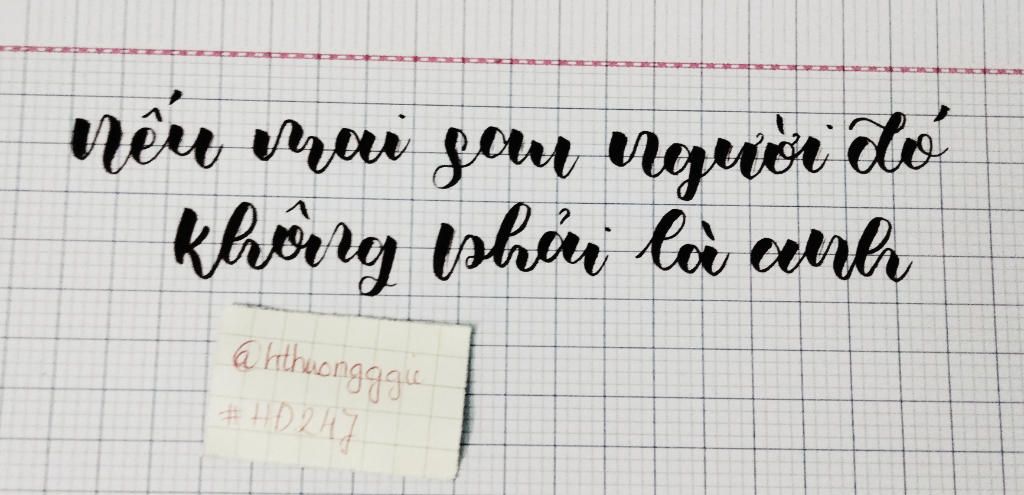 nếu mai sau người đó
không phải là anh
@hthuongggii
#HD247